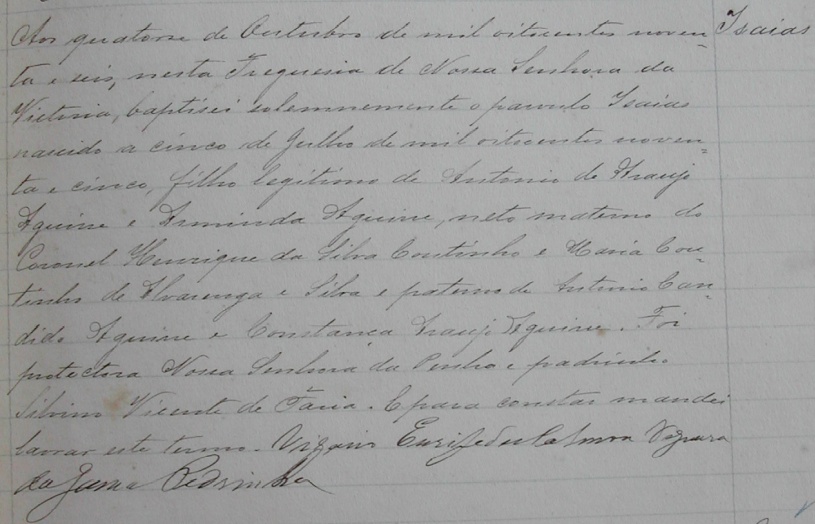 Aos quatorse de Outubro de mil oitocentos noven= Isaias
ta e seis, nesta Freguesia de Nossa Senhora da
Victoria, baptisei solemnemente o parvulo Isaias
nascido a cinco de Julho de mil oitocentos noven=
ta e cinco, filho legitimo de Antonio de Araujo
Aguirre e Arminda Aguirre, neto materno do
Coronel Henrique da Silva Coutinho e Maria Cou=
tinho de Alvarenga e Silva e paterno de Antonio Can=
dido Aguirre e Constança Araujo Aguirre. Foi
protectora Nossa Senhora da Penha e padrinho
Silvino Vicente de Faria. E para constar mandei
lavrar este termo. Vigario Euripedes Calmon Nogueira
da Gama Pedrinha